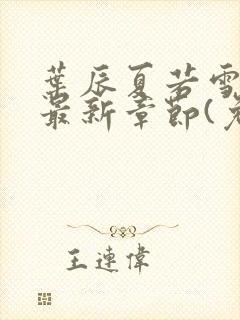 葉辰夏若雪
最新章節(
王連偉